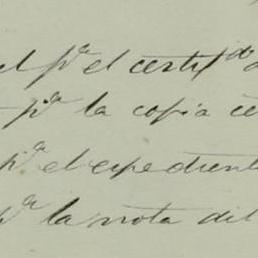 el pª el certifdo
pª la copia ce
pª el expediente
pª la nota del